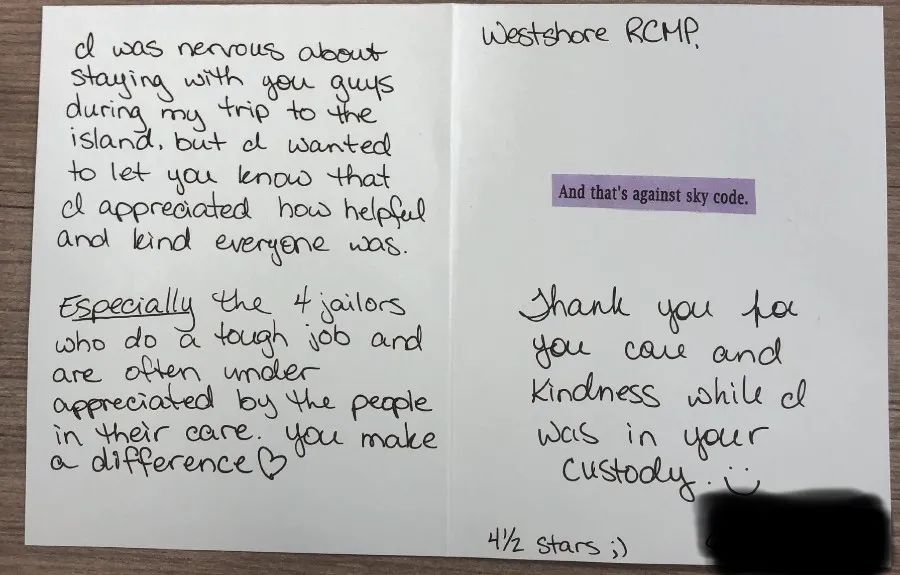 I was nervous about
staying with you guys
during my trip to the
island, but I wanted
to let you know that
I appreciated how helpful
and kind everyone was.
Especially the 4 jailors
who do a tough job and
are often under
appreciated by the people
in their care. you make
a difference♡
Westshore RCMP,
And that's against sky code.
Thank you for
you care and
kindness while I
was in your
custody. :)
4 1/2 stars ;)